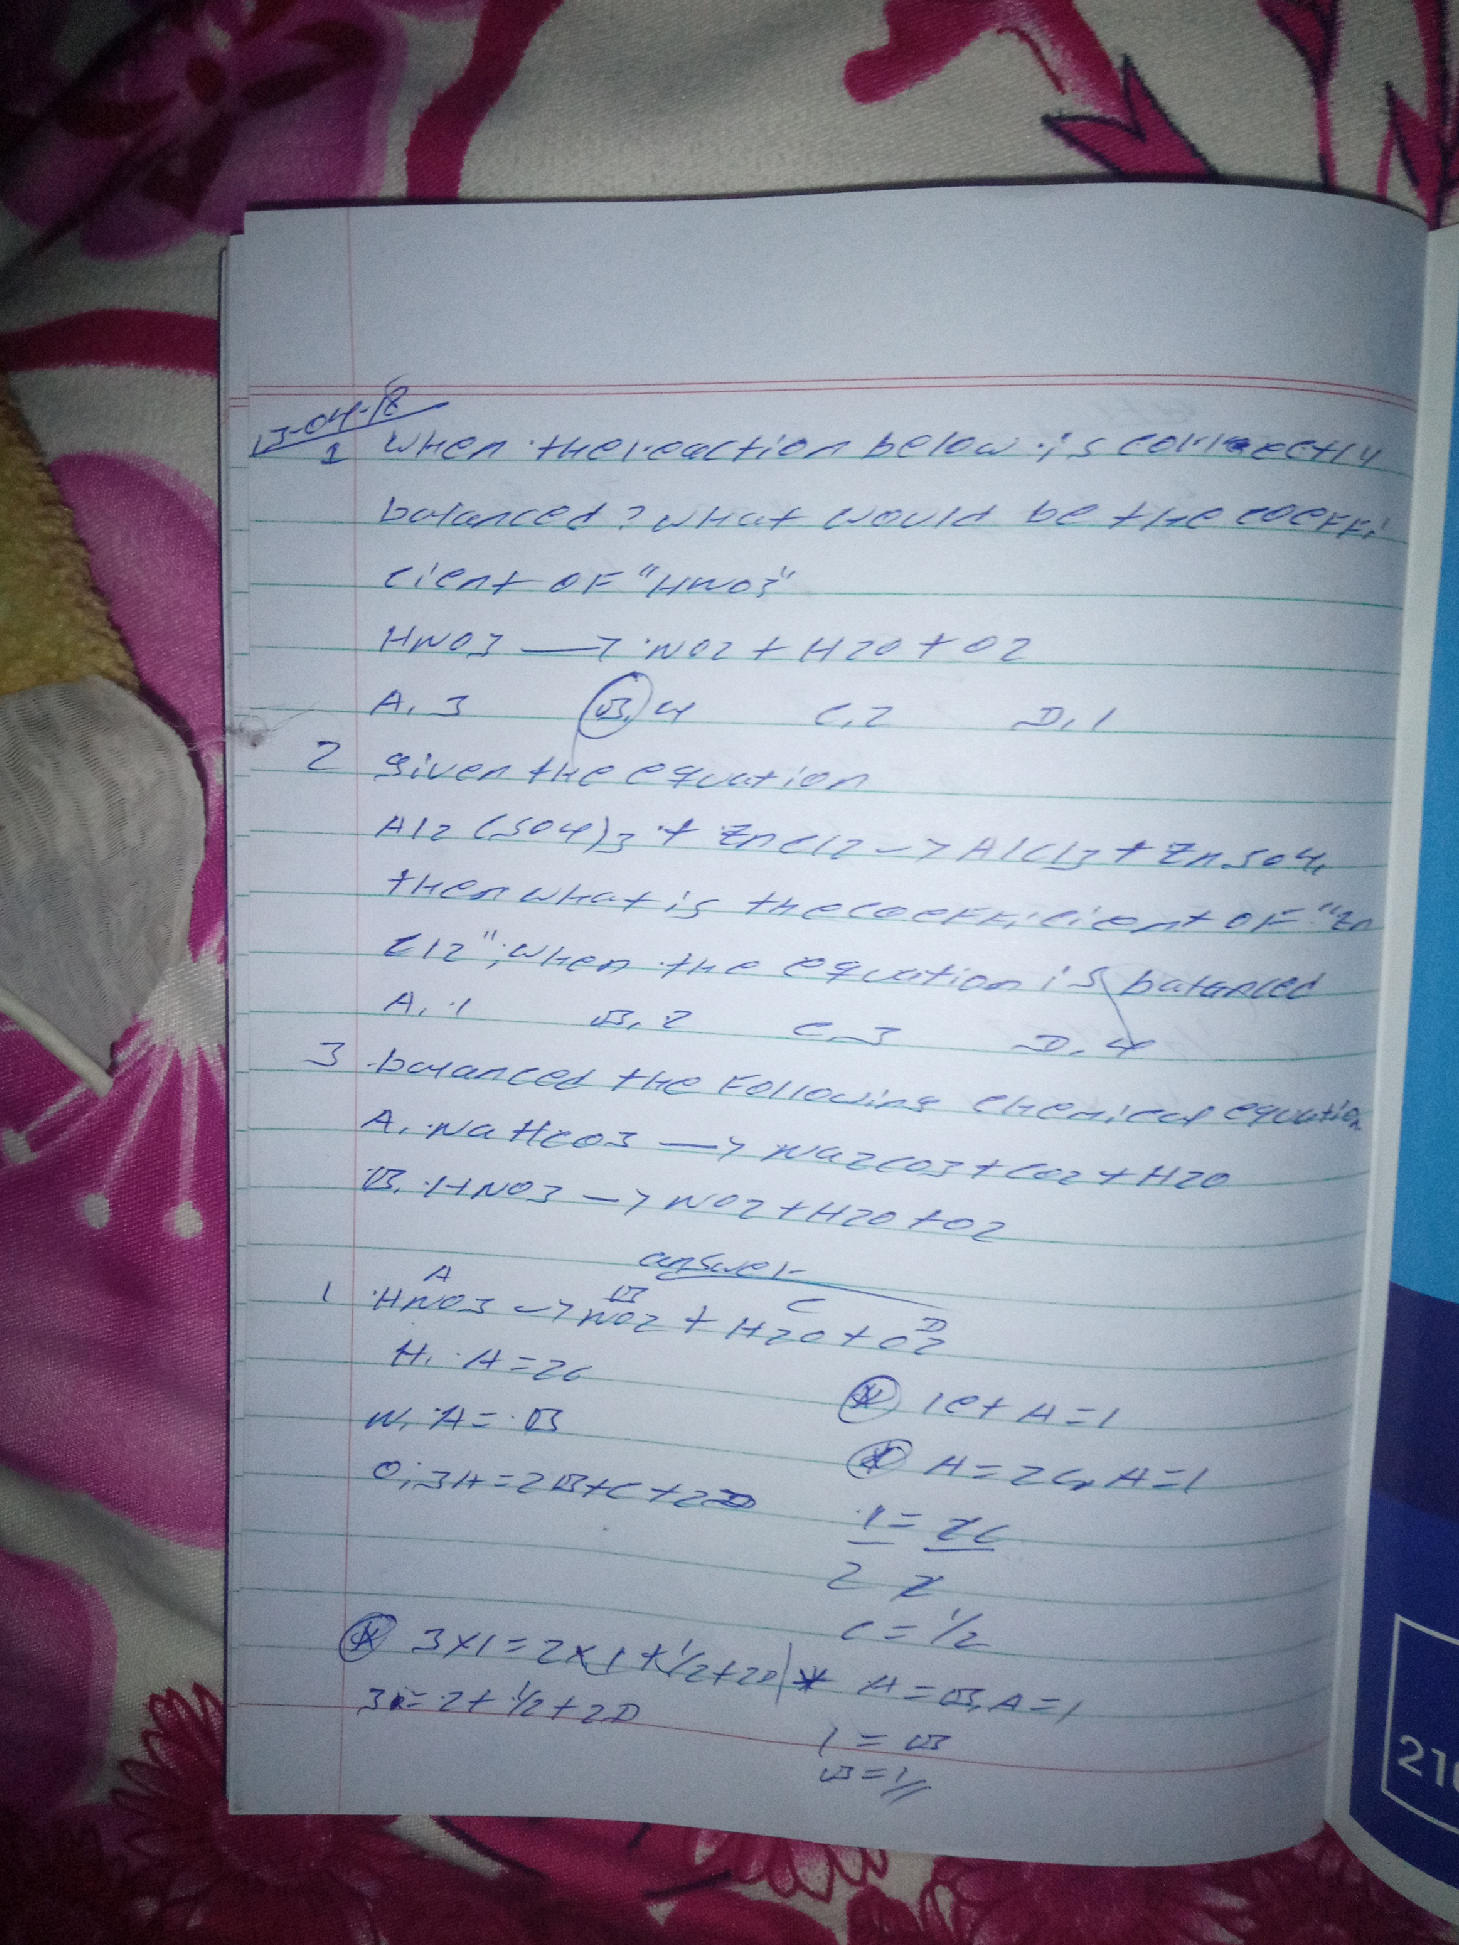 13-04-18
1 When the reaction below is correctly
balanced? what would be the coeffi
cient of "HNO3"
HNO3 → NO2 + H2O + O2
A. 3 B. 4 C. 2 D. 1
2 given the equation
Al2(SO4)3 + ZnCl2 → AlCl3 + ZnSO4,
then what is the coefficient of "Zn
Cl2"; when the equation is balanced
A. 1 B. 2 C. 3 D. 4
3 balanced the following chemical equation
A. NaHCO3 → Na2CO3 + CO2 + H2O
B. HNO3 → NO2 + H2O + O2
answer
A B C D
1 HNO3 → NO2 + H2O + O2
H. A = 2C
* let A = 1
N. A = B
* A = 2C, A = 1
O; 3A = 2B + C + 2D
1 = 2C
2 2
C = 1/2
* 3×1 = 2×1 + 1/2 + 2D
* A = B, A = 1
3 = 2 + 1/2 + 2D
1 = B
B = 1//
210